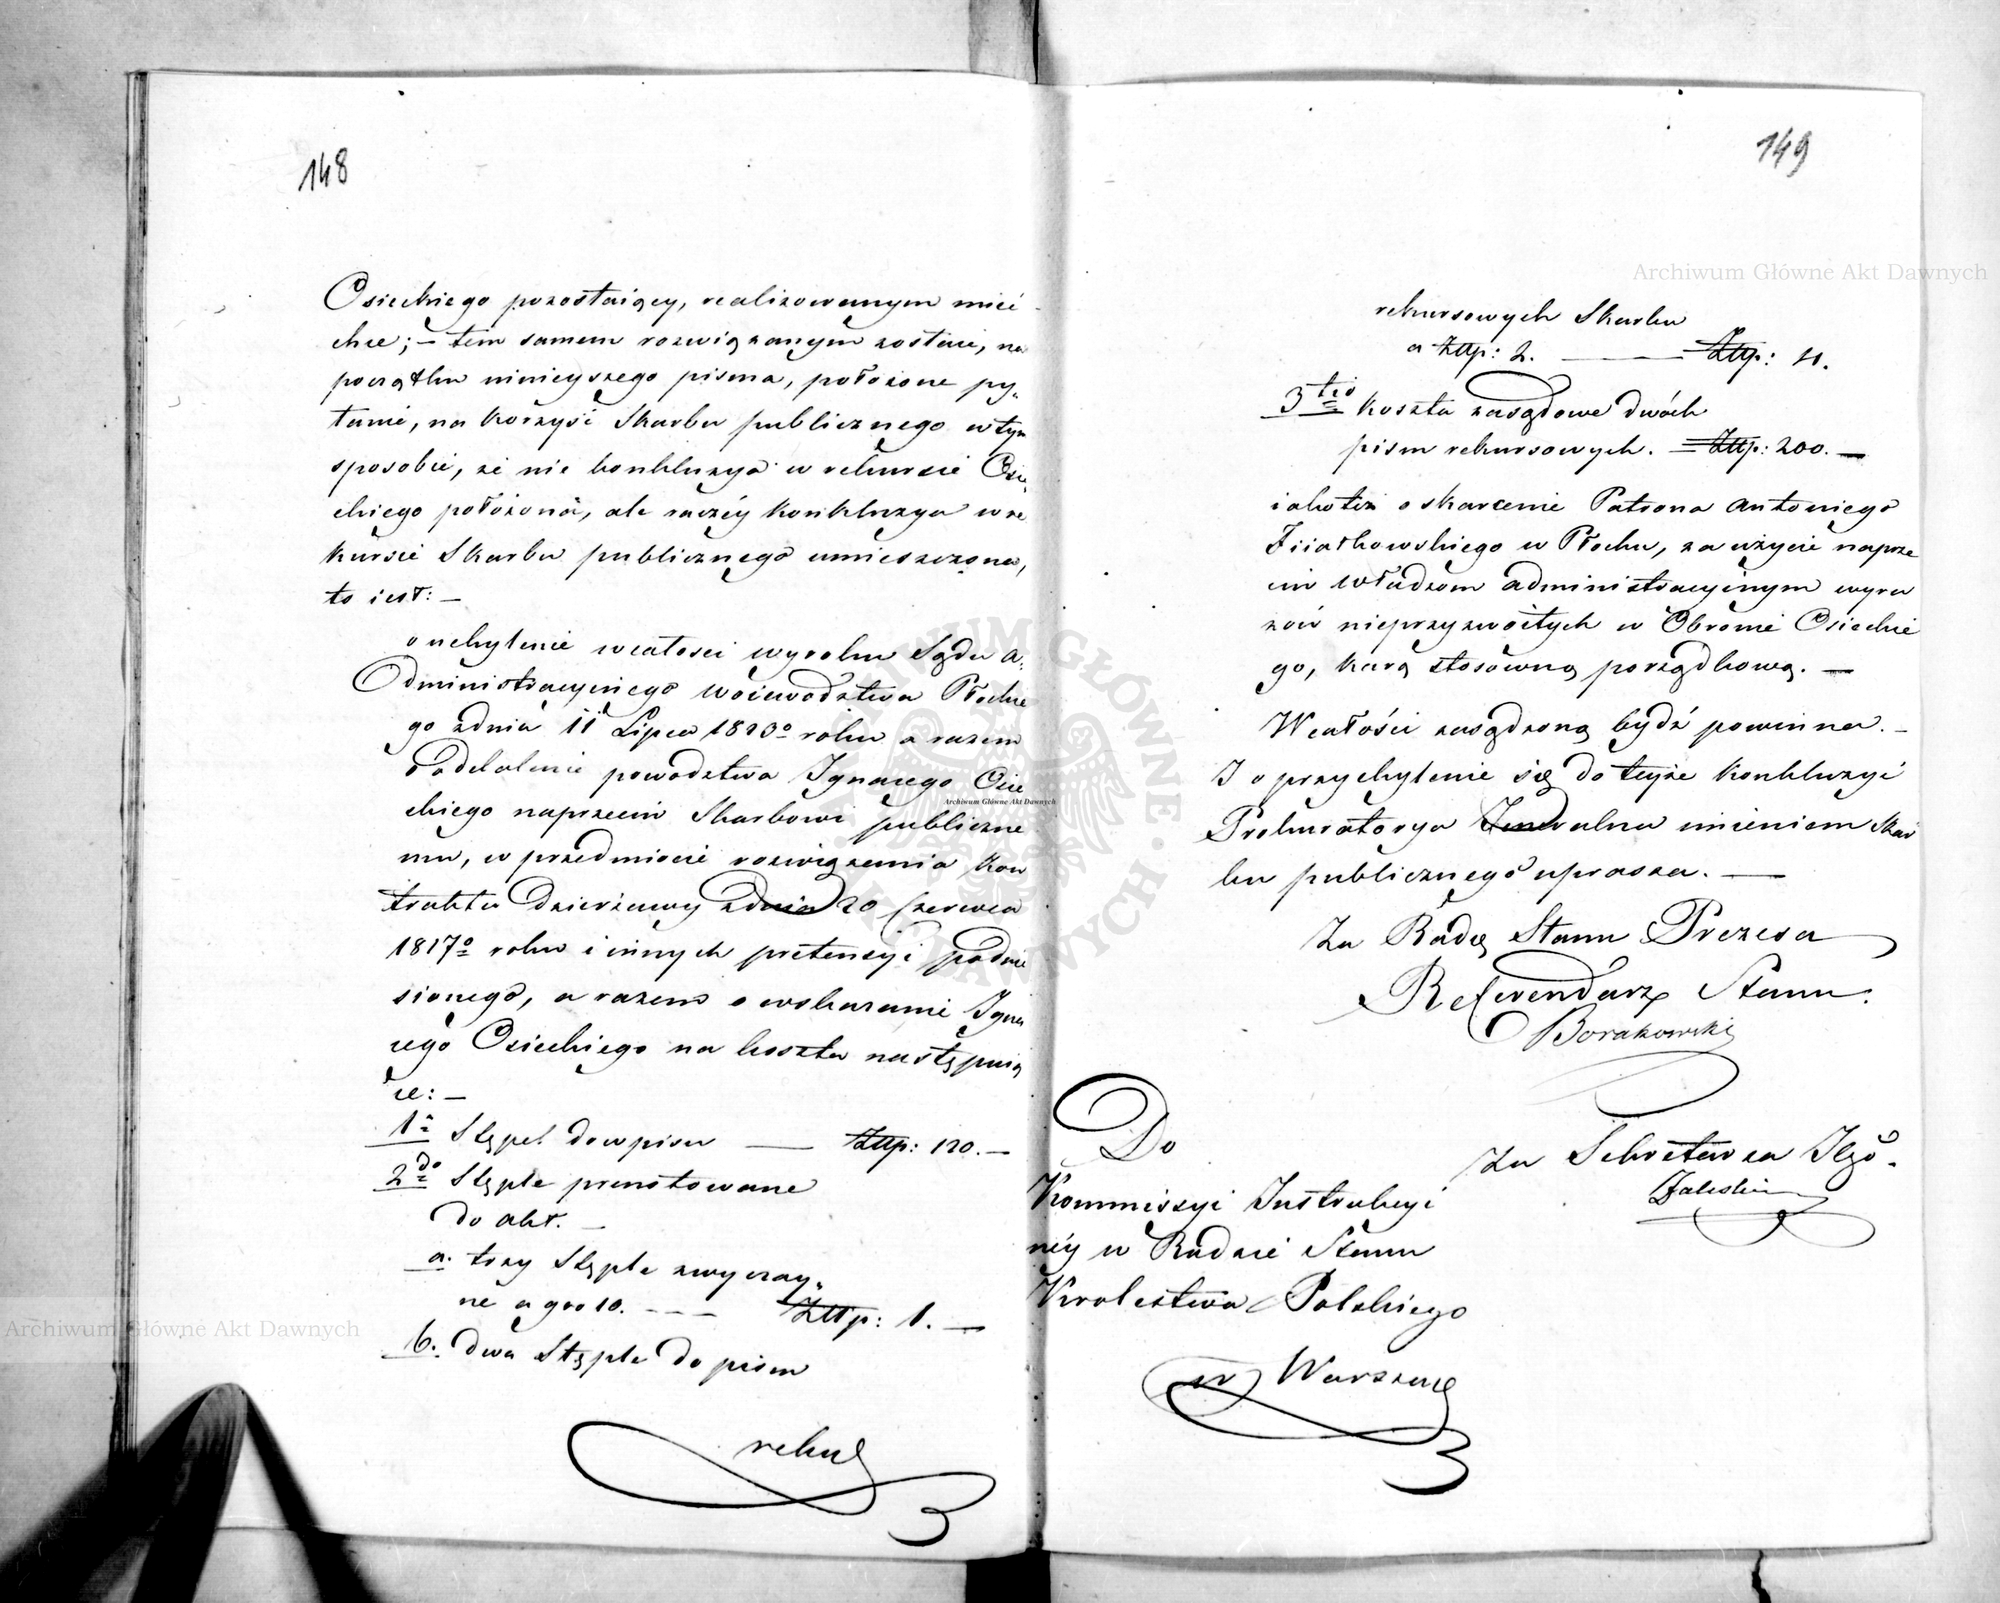 148
Osieckiego pozostaiący, realizowanym mieć
chce; – tem samem rozwiązanym zostaie, na
początku ninieyszego pisma, położone py„
tanie, na korzyść Skarbu publicznego w tym
sposobie, że nie konkluzya w rekursie Osie„
ckiego położona, ale raczéy konkluzya w re
kursie Skarbu publicznego umieszczona,
to iest: –
o uchylenie wcałości wyroku Sądu A„
Administracyinego Woiewództwa Płockie
go zdnia 11 Lipca 1823º roku a razem
oddalenie powodztwa Ignacego Osie
ckiego naprzeciw Skarbowi publiczne
mu, w przedmiocie rozwiązania Kon
traktu Dzierżawy zdnia 20 Czerwca
1817º roku i innych pretensyi podnie
sionego, a razem o wskazanie Igna
cego Osieckiego na koszta następuią
ce: –
1º Stępel do wpisu — Złłp: 120. –
2do Stęple prenotowane
do akt. –
a. trzy Stęple zwyczay„
ne a gro 10. - - - Złłp: 1. –
b. dwa Stęple do pism
reku
149
rekursowych Skarbu
a Złłp: 2. — Złłp: 4.
3tio Koszta zasądowe dwóch
pism rekursowych. = Złłp: 200. –
iakoteż o skarcenie Patrona Antoniego
w Płocku, za użycie naprze
ciw Władzom administracyinym wyra
zów nieprzyzwoitych w Obronie Osieckie
go, karą stosowną porządkową. –
Wcałości zasądzoną bydź powinna. –
I o przychylenie się do teyże konkluzyi
Prokuratorya Jeneralna imieniem Skar
bu publicznego uprasza. —
Za Radcę Stanu Prezesa
Referendarz Stanu.
Borakowski
Do
Kommissyi Instrukcyi
néy w Radzie Stanu
Krolestwa Polskiego
w Warszawie
Za Sekretarza Jlgo.
Zaleski
Archiwum Główne Akt Dawnych
Archiwum Główne Akt Dawnych
Archiwum Główne Akt Dawnych
ARCHIWUM GŁÓWNE AKT DAWNYCH